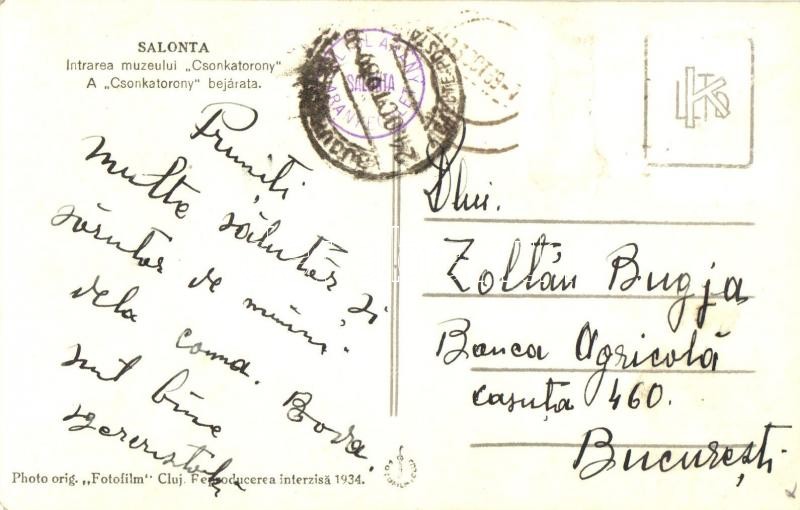 SALONTA
Intrarea muzeului „Csonkatorony"
A „Csonkatorony" bejárata.
ARANY
SALONTA
Primiti
multe sălutăr si
sărutor de mâini
dela coma. Bora.
sint bine
Dlui.
Zoltán Bugja
Banca Agricolă
casuța 460.
București
Photo orig. „Fotofilm" Cluj. Reproducerea interzisă 1934.